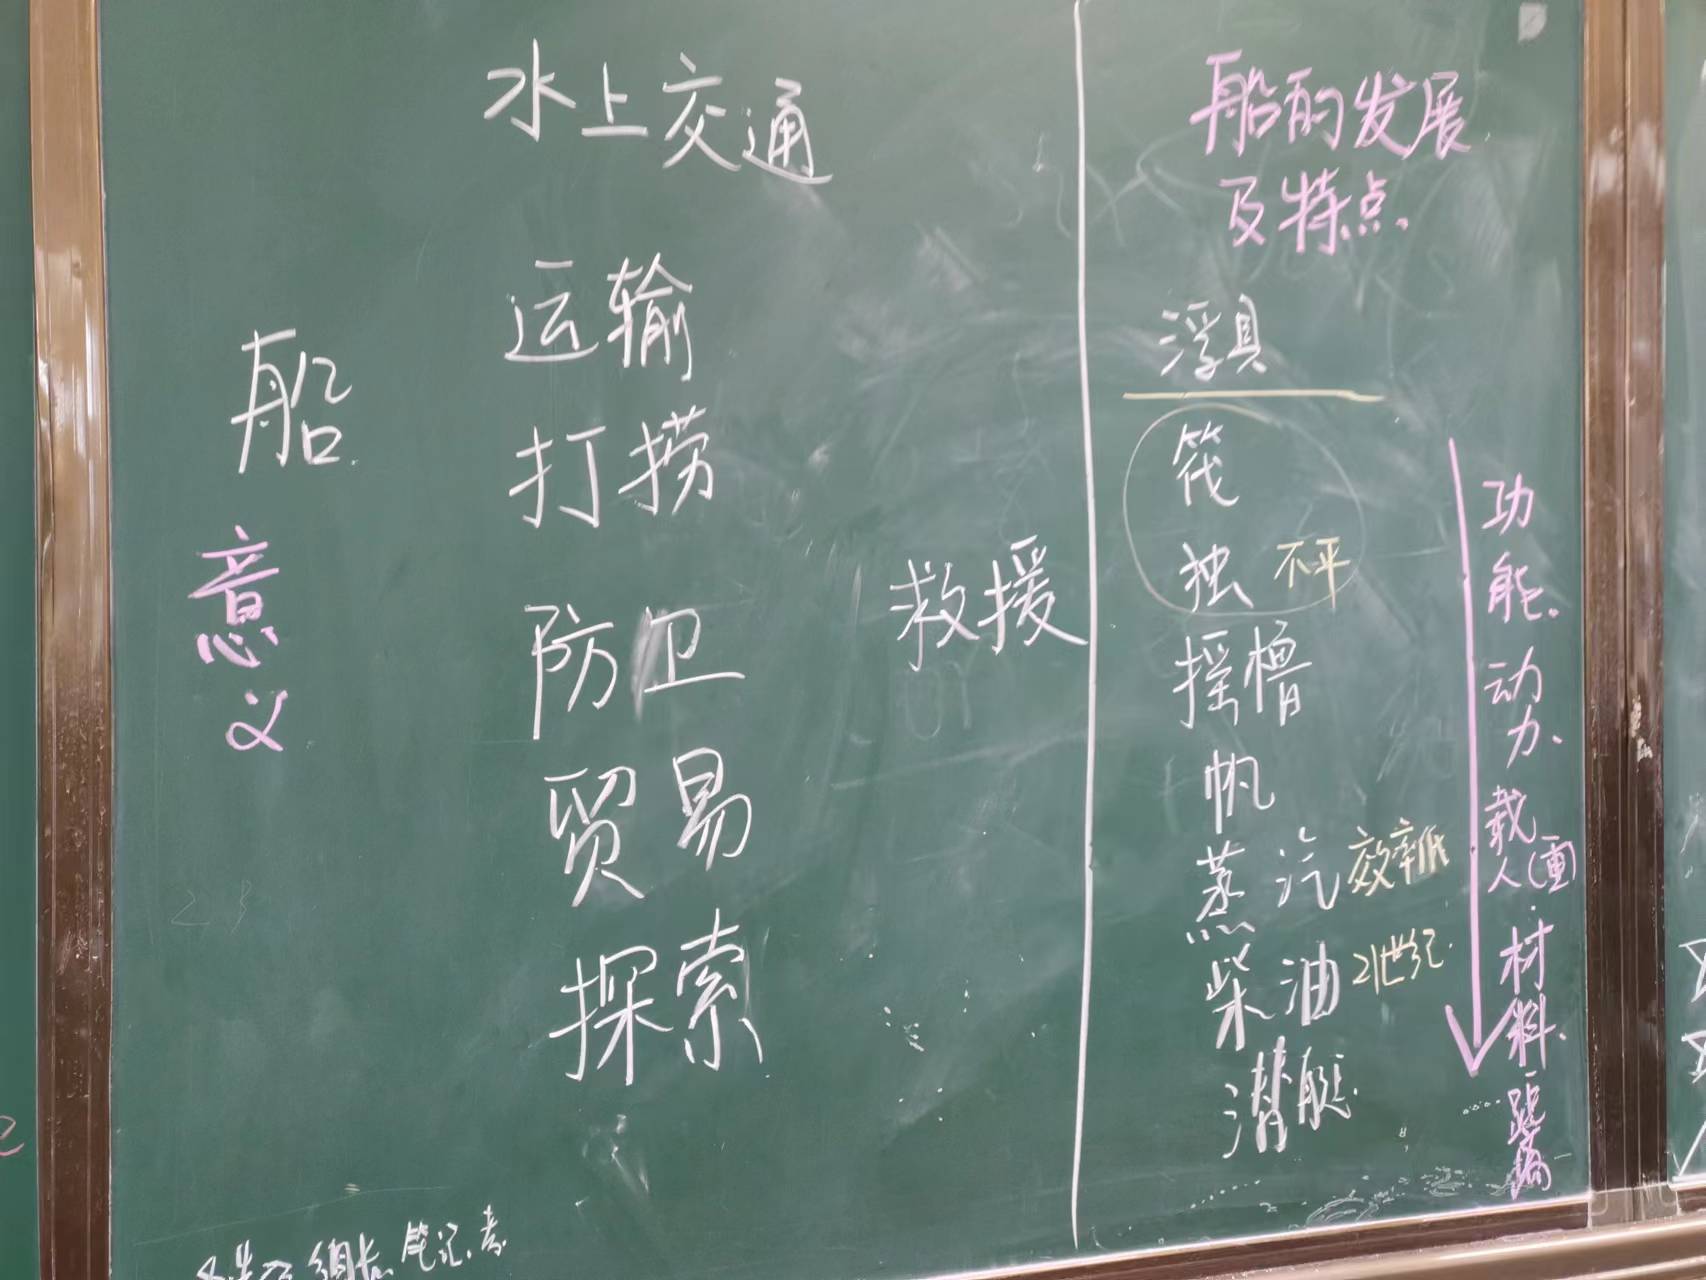 水上交通
船
意义
运输
打捞
防卫
救援
贸易
探索
组长 笔记
船的发展
及特点.
浮具
筏
独 不平
摇橹
帆
蒸汽 效率低
柴油 21世纪.
潜艇.
功能.动力、载人(重).材料.距离